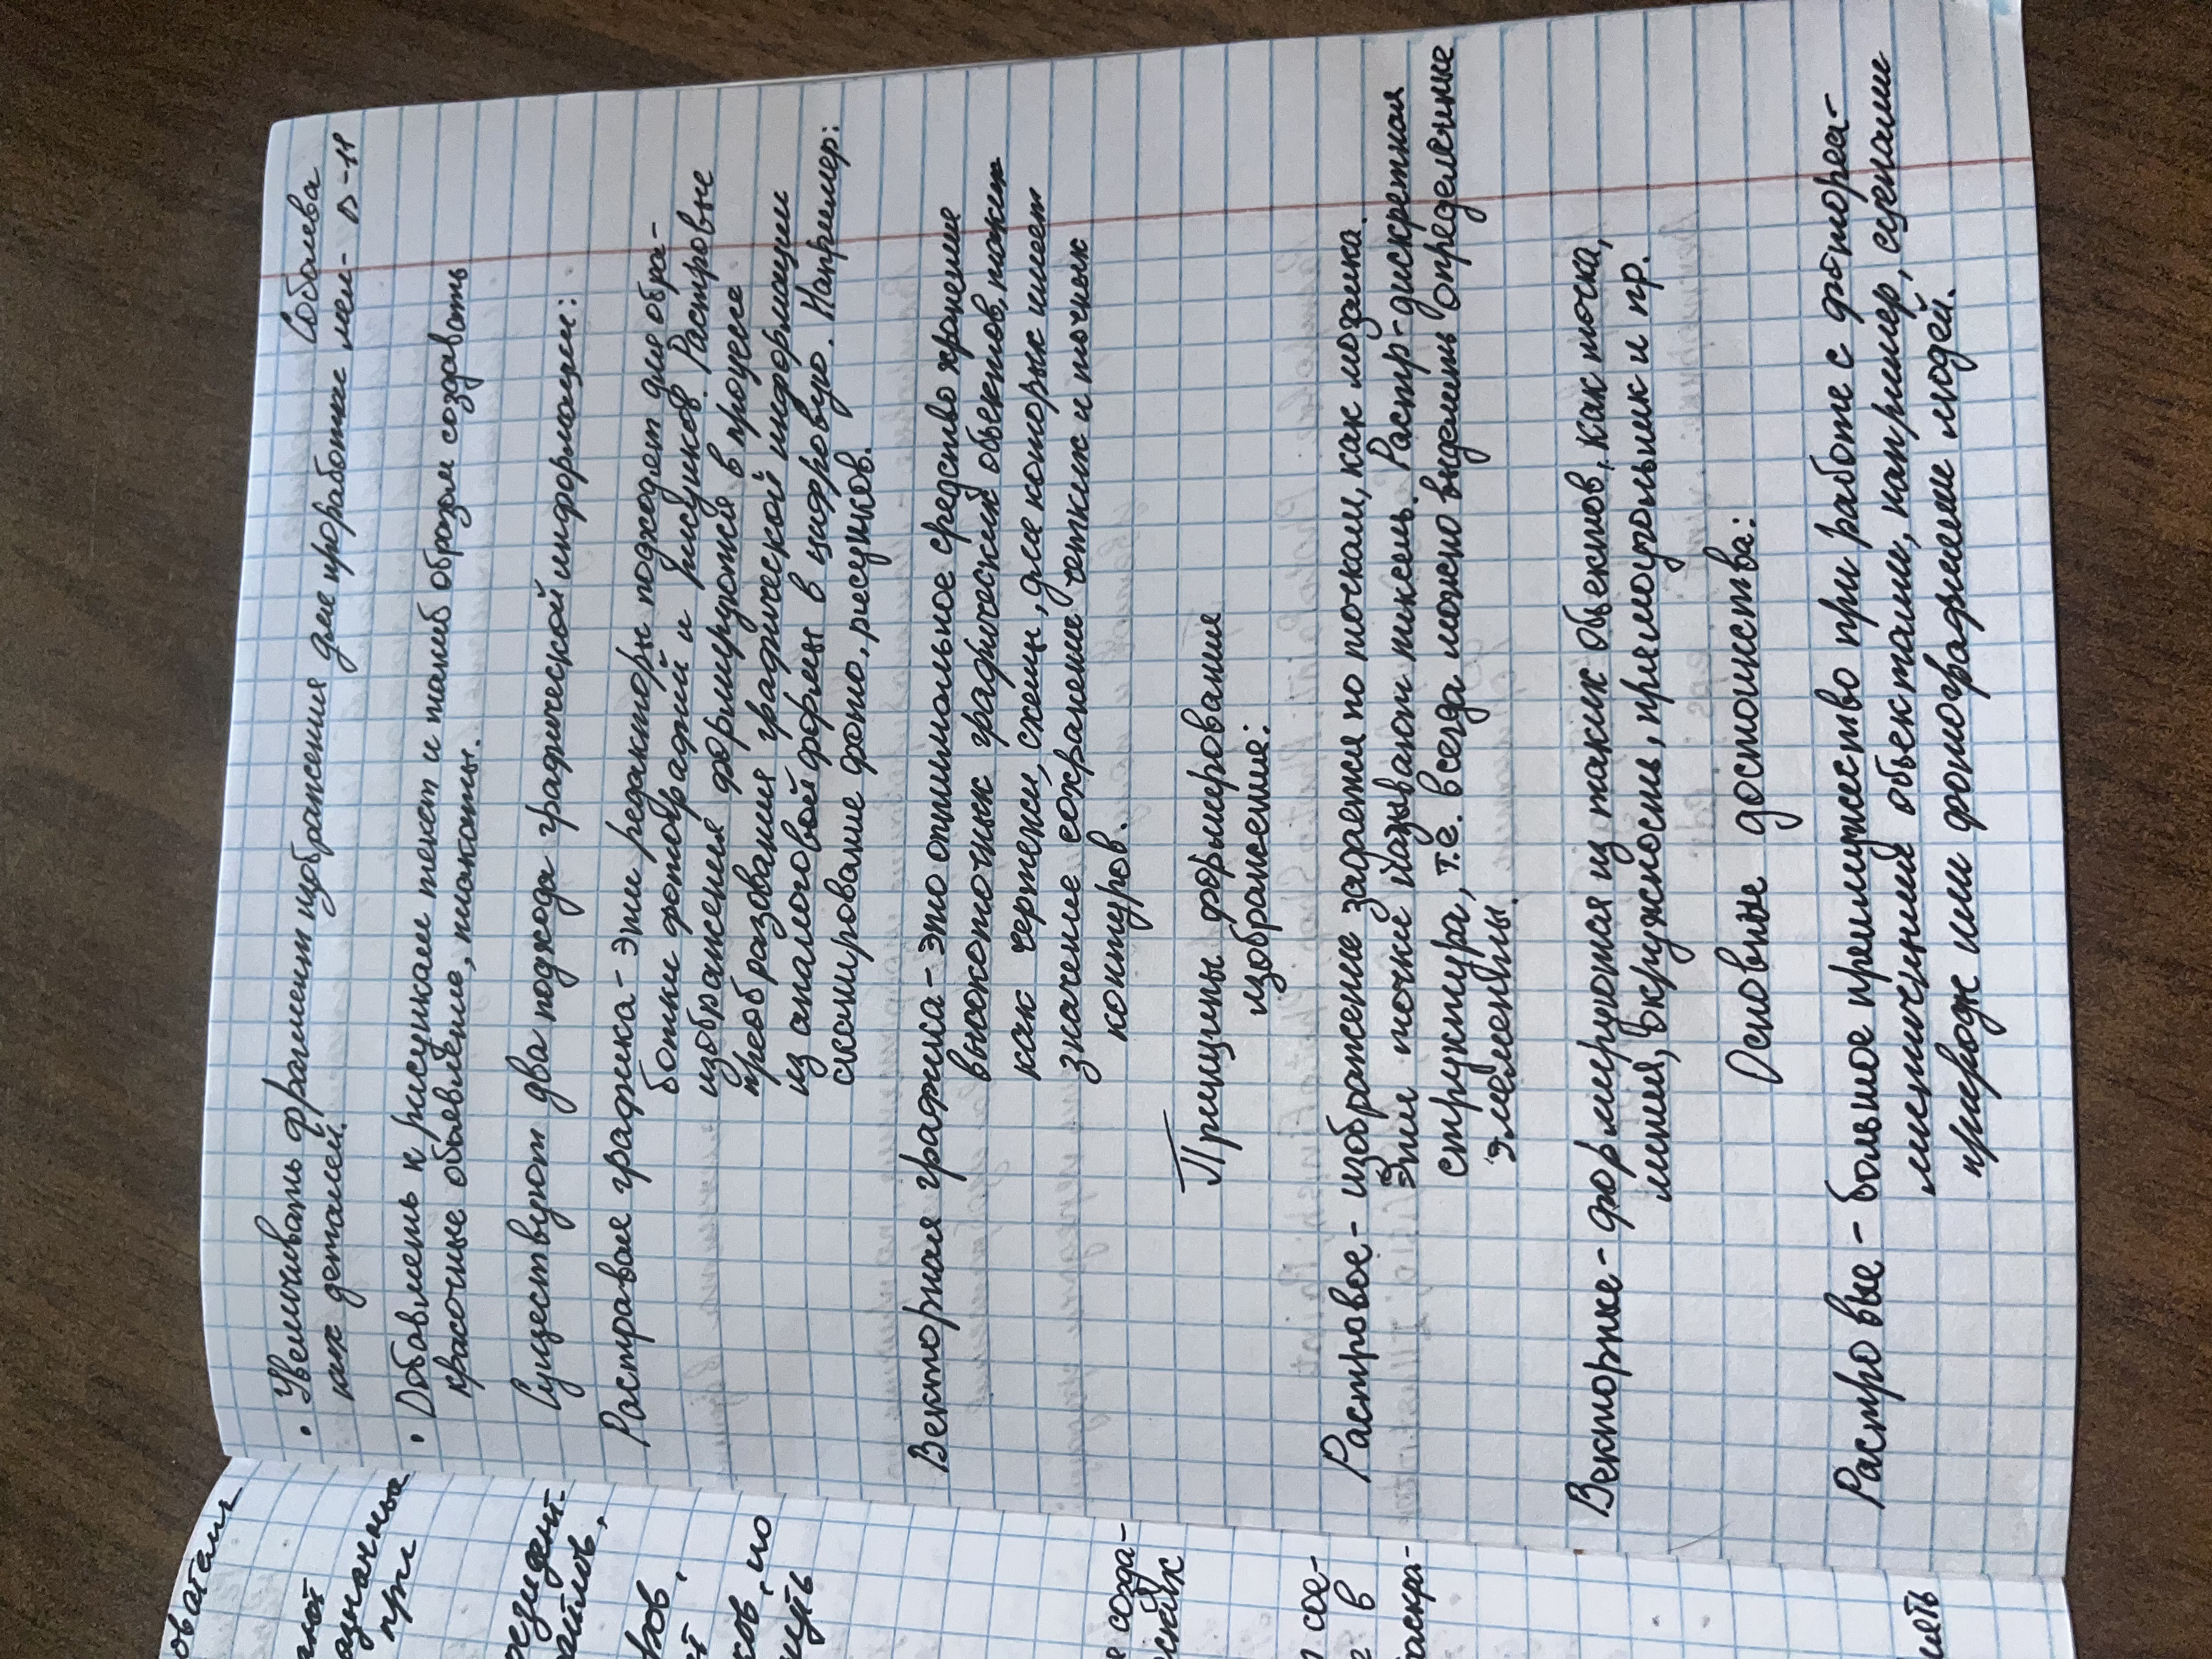 Соболева
D-11
• Увеличивать фрагмент изображения для проработки мел-
ких деталей.
• Добавлень к рисункам текст и таниб образом создавать
красочные обьявление, плакаты.
Существуют два подхода графической информации:
Растравая графика - эти редакторы подходет для обра-
ботки фотографий и рисунков. Растровые
изображения формируются в процессе
преобразования графической информации
из аналоговой формы в цифровую. Например:
сканирование фото, рисунков.
Векторная графика - это оптимальное средство хронение
высокоточнх графический обьектов, таких
как чертежи, схемы, для которых имеет
значение сохранение четких и точных
контуров.
Принципы формирования
изображение:
Растровое - изображение задается по точкам, как мозаика.
Эти точки называют пиксель. Растр-дискретная
структура, т.е. всегда можно выделить определенные
элементы.
Векторные - формируются из таких обьектов, как точка,
линия, окружность, прямоугольник и пр.
Основные достоинства:
Растровые - большое преимущество при работе с фотореа-
листичными обьектами, например, сценами
природы или фотографиями людей.
ователь
при
езидент-
айлов,
ков,
сков, но
созда-
еских
сое-
в
раскра-